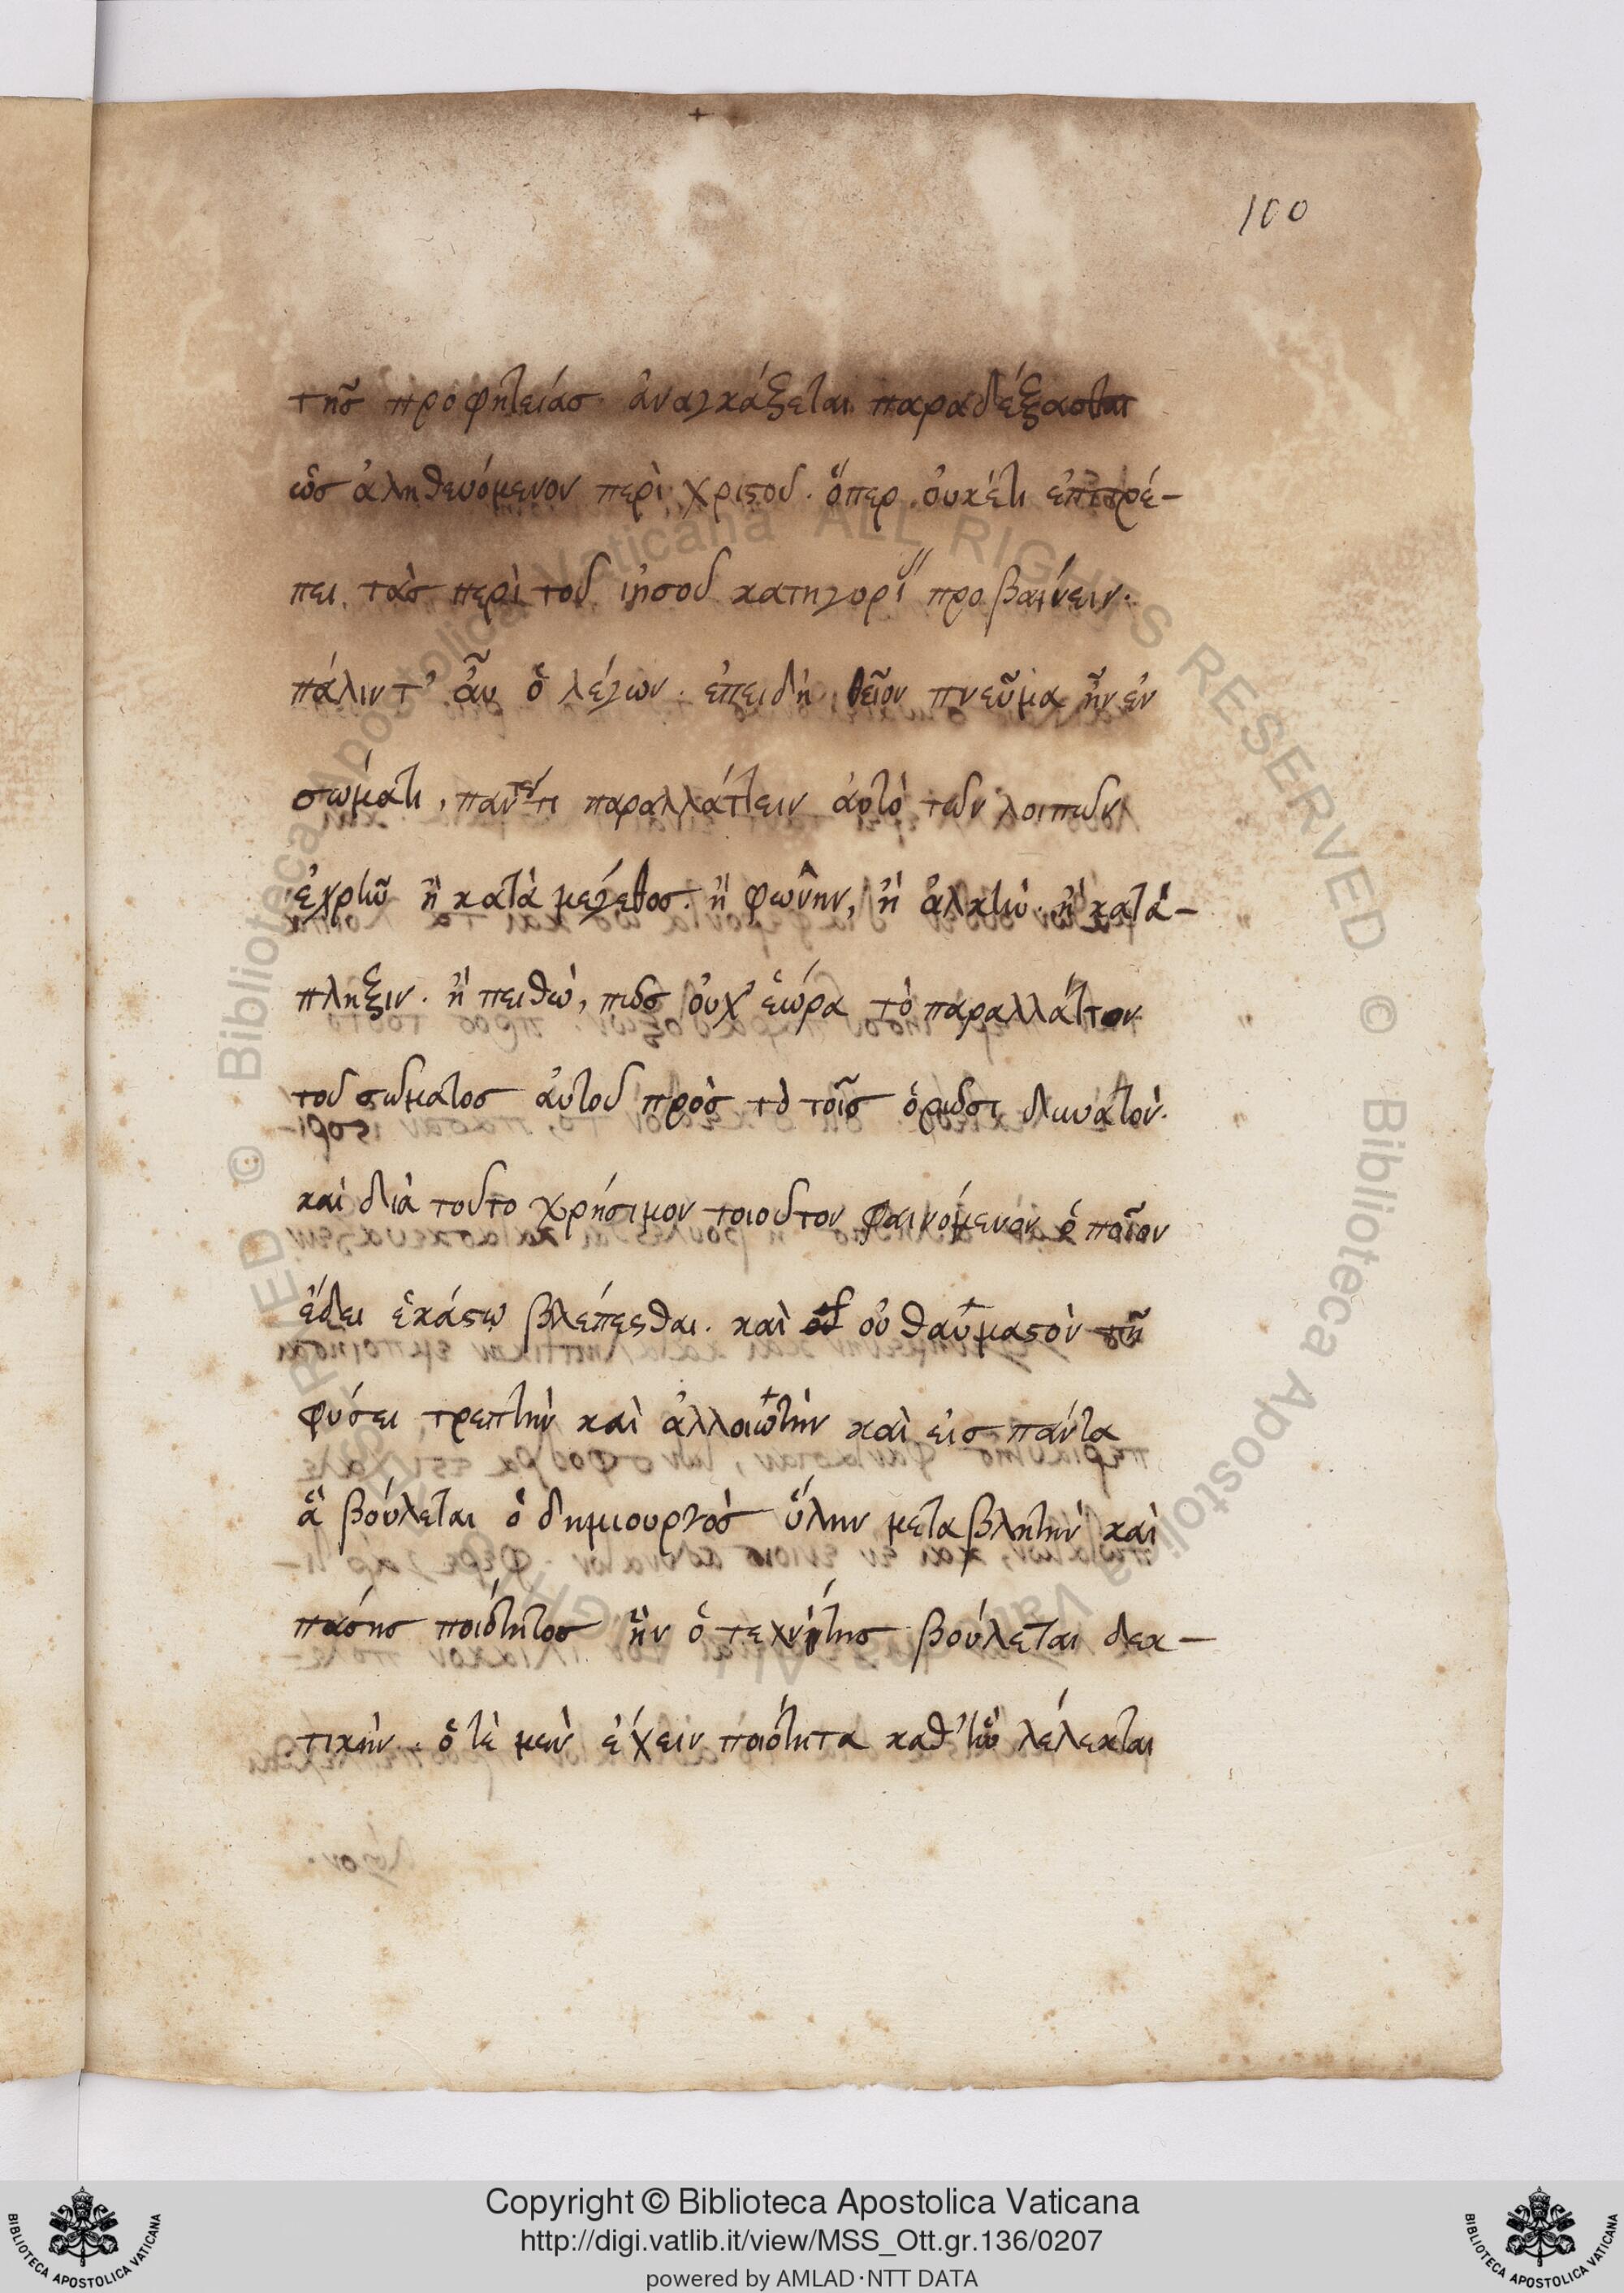 100
τῆς προφητείας ἀναγκάζεται παραδέξασθαι
ὡς ἀληθευόμενον περὶ χριστοῦ. ὅπερ οὐκέτι ἐπιτρέ-
πει τὰς περὶ τοῦ ἰησοῦ κατηγορί προβαίνειν.
πάλιν τ' ἂν ὁ λέγων. ἐπειδὴ θεῖον πνεῦμα ἦν ἐν
σώματι, παντί παραλλάττειν αὐτὸ τῶν λοιπῶν
ἐχρῆν ἢ κατὰ μέγεθος. ἢ φωνὴν, ἢ ἀλκὴν. ἢ κατά-
πληξιν. ἢ πειθώ, πῶς οὐχ' ἑώρα τὸ παραλλάττον
τοῦ σώματος αὐτοῦ πρὸς τὸ τοῖς ὁρῶσι δυνατὸν.
καὶ διὰ τοῦτο χρήσιμον τοιοῦτον φαινόμενον ὁποῖον
ἔδει ἑκάστῳ βλέπεσθαι. καὶ οὐ θαυμαστὸν τὴ
φύσει τρεπτὴν καὶ ἀλλοιωτὴν καὶ εἰς πάντα
ἃ βούλεται ὁ δημιουργὸς ὕλην μεταβλητὴν καὶ
πάσης ποιότητος ἣν ὁ τεχνίτης βούλεται δεκ-
τικὴν. ὁτὲ μὲν ἔχειν ποιότητα καθ' ἣν λέλεκται
© Biblioteca Apostolica Vaticana ALL RIGHTS RESERVED
Copyright © Biblioteca Apostolica Vaticana
http://digi.vatlib.it/view/MSS_Ott.gr.136/0207
powered by AMLAD·NTT DATA
BIBLIOTECA APOSTOLICA VATICANA
BIBLIOTECA APOSTOLICA VATICANA